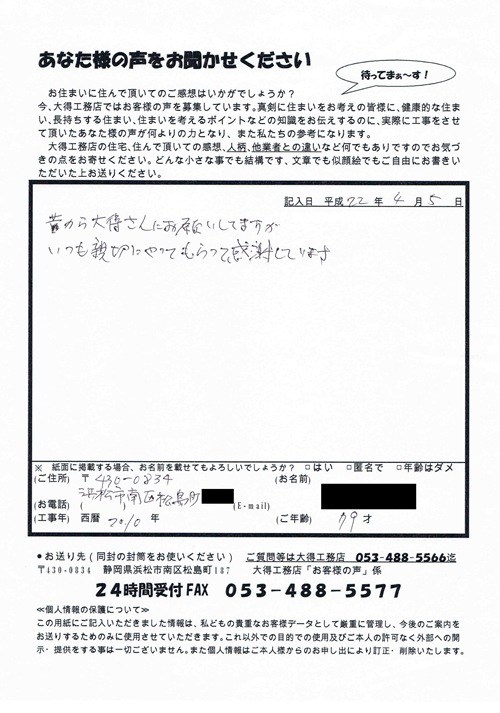 あなた様の声をお聞かせください
待ってまぁ～す!
お住まいに住んで頂いてのご感想はいかがでしょうか?
今、大得工務店ではお客様の声を募集しています。真剣に住まいをお考えの皆様に、健康的な住ま
い、長持ちする住まい、住まいを考えるポイントなどの知識をお伝えするのに、実際に工事をさせ
て頂いたあなた様の声が何よりの力となり、また私たちの参考になります。
大得工務店の住宅、住んで頂いての感想、人柄、他業者との違いなど何でもありですのでお気づ
きの点をお寄せください。どんな小さな事でも結構です、文章でも似顔絵でもご自由にお書きい
ただいた上お送りください。
記入日 平成 22 年 4 月 5 日
昔から大得さんにお願いしてますが
いつも親切にやってもらって感謝しています
※ 紙面に掲載する場合、お名前を載せてもよろしいでしょうか? □はい □匿名で □年齢はダメ
(ご住所) 〒430-0834 (お名前)
浜松市南区松島町
(お電話) ( ) (E-mail)
(工事年) 西暦 2010 年 (ご年齢) 79 才
●お送り先(同封の封筒をお使いください) ご質問等は大得工務店 053-488-5566迄
〒430-0834 静岡県浜松市南区松島町187 大得工務店「お客様の声」係
24時間受付FAX 053-488-5577
≪個人情報の保護について≫
この用紙にご記入いただきました情報は、私どもの貴重なお客様データとして厳重に管理し、今後のご案内を
お送りするためのみに使用させていただきます。これ以外での目的での使用及びご本人の許可なく外部への開
示・提供をする事は一切ございません。また個人情報はご本人様からのお申し出により訂正・削除いたします。